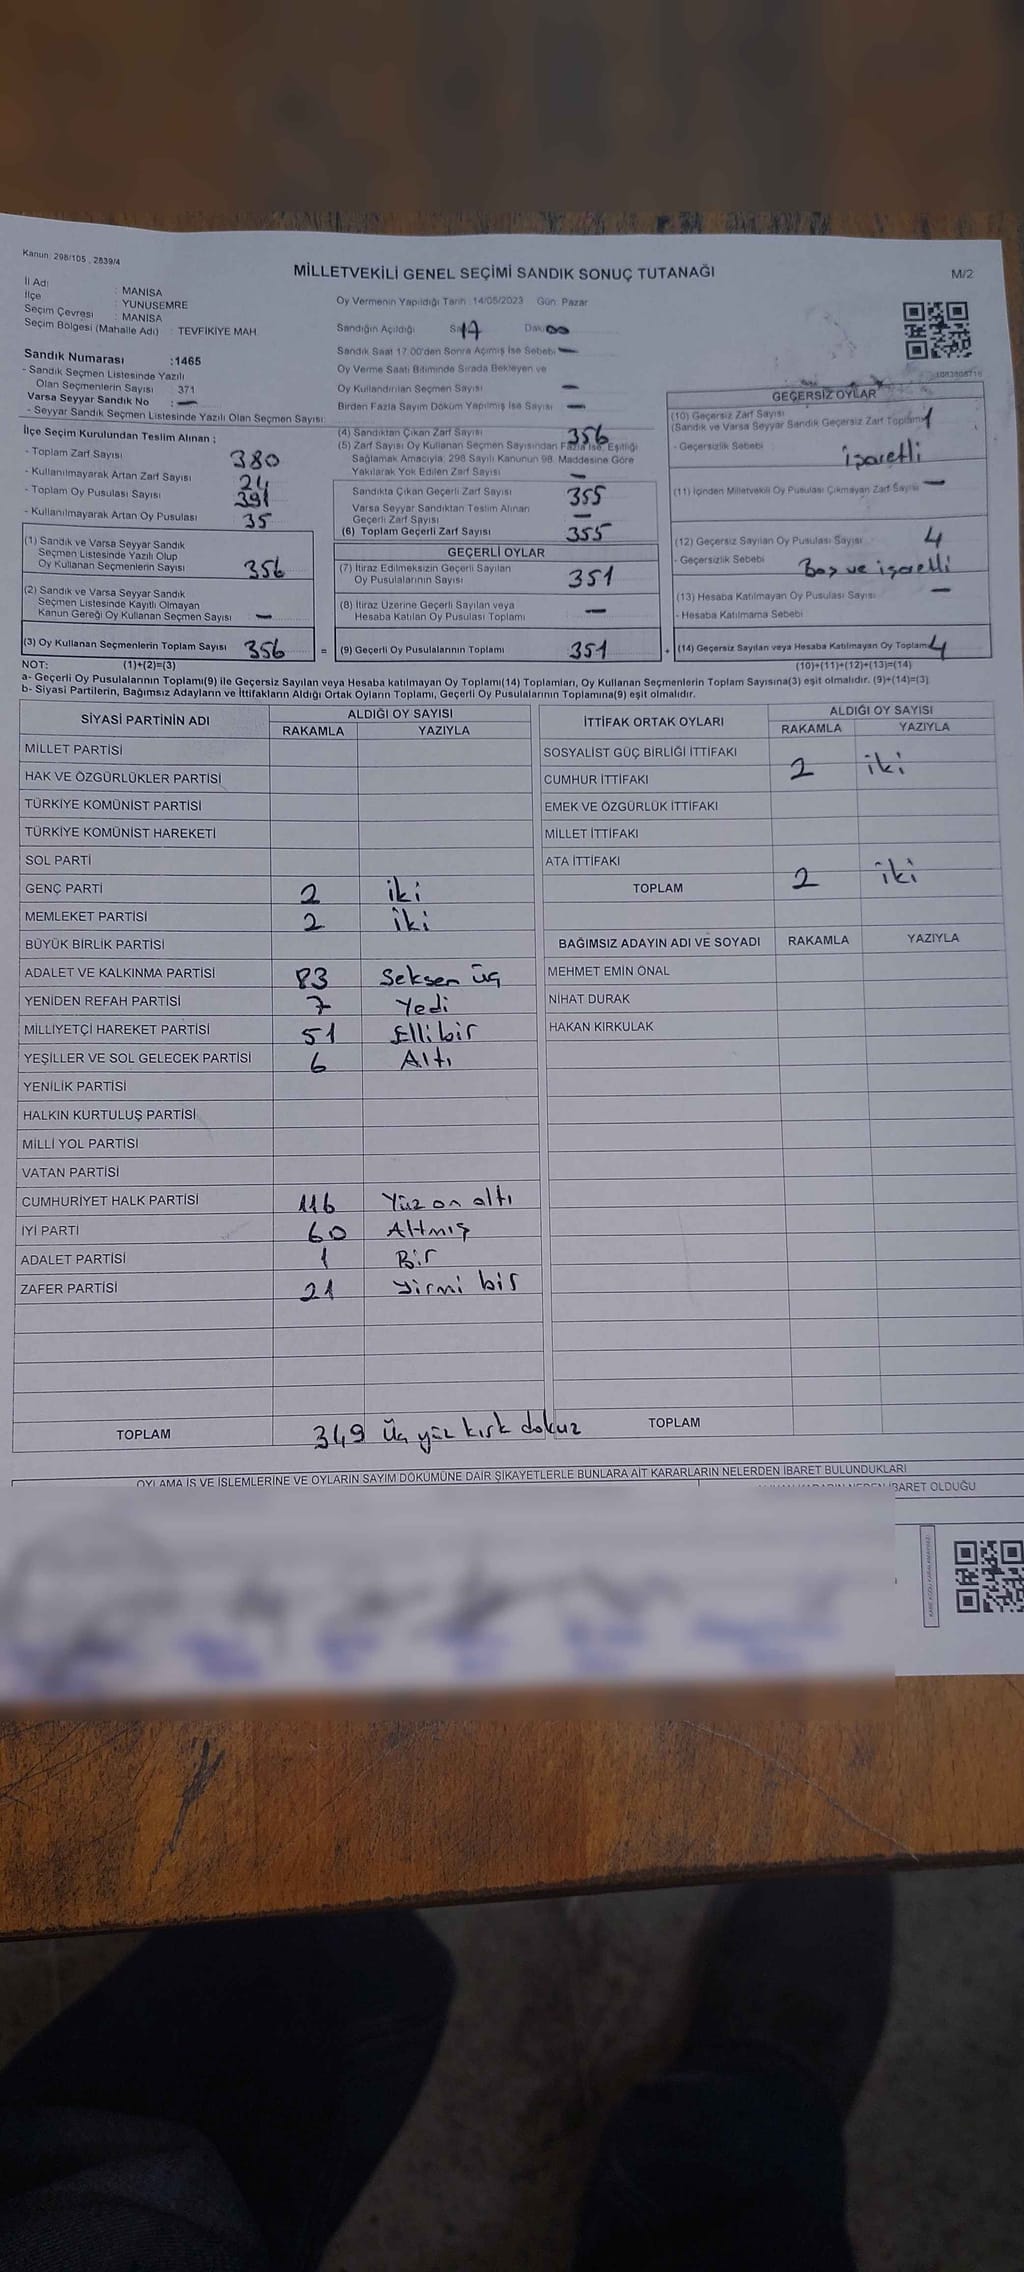 Kanun: 298/105 , 2839/4
MİLLETVEKİLİ GENEL SEÇİMİ SANDIK SONUÇ TUTANAĞI
M/2
İl Adı : MANİSA
İlçe : YUNUSEMRE
Seçim Çevresi : MANİSA
Seçim Bölgesi (Mahalle Adı) : TEVFİKİYE MAH.
Sandık Numarası :1465
- Sandık Seçmen Listesinde Yazılı
Olan Seçmenlerin Sayısı : 371
Varsa Seyyar Sandık No : —
- Seyyar Sandık Seçmen Listesinde Yazılı Olan Seçmen Sayısı:
Oy Vermenin Yapıldığı Tarih :14/05/2023 Gün: Pazar
Sandığın Açıldığı Sa 17 Dak 00
Sandık Saat 17.00'den Sonra Açılmış İse Sebebi —
Oy Verme Saati Bitiminde Sırada Bekleyen ve
Oy Kullandırılan Seçmen Sayısı —
Birden Fazla Sayım Döküm Yapılmış İse Sayısı —
İlçe Seçim Kurulundan Teslim Alınan ;
- Toplam Zarf Sayısı 380
- Kullanılmayarak Artan Zarf Sayısı 24
- Toplam Oy Pusulası Sayısı 391
- Kullanılmayarak Artan Oy Pusulası 35
(1) Sandık ve Varsa Seyyar Sandık
Seçmen Listesinde Yazılı Olup
Oy Kullanan Seçmenlerin Sayısı 356
(2) Sandık ve Varsa Seyyar Sandık
Seçmen Listesinde Kayıtlı Olmayan
Kanun Gereği Oy Kullanan Seçmen Sayısı —
(3) Oy Kullanan Seçmenlerin Toplam Sayısı 356 =
(4) Sandıktan Çıkan Zarf Sayısı 356
(5) Zarf Sayısı Oy Kullanan Seçmen Sayısından Fazla İse, Eşitliği
Sağlamak Amacıyla, 298 Sayılı Kanunun 98. Maddesine Göre
Yakılarak Yok Edilen Zarf Sayısı —
Sandıkta Çıkan Geçerli Zarf Sayısı 355
Varsa Seyyar Sandıktan Teslim Alınan
Geçerli Zarf Sayısı —
(6) Toplam Geçerli Zarf Sayısı 355
GEÇERLİ OYLAR
(7) İtiraz Edilmeksizin Geçerli Sayılan
Oy Pusulalarının Sayısı 351
(8) İtiraz Üzerine Geçerli Sayılan veya
Hesaba Katılan Oy Pusulası Toplamı —
(9) Geçerli Oy Pusulalarının Toplamı 351 +
GEÇERSİZ OYLAR
(10) Geçersiz Zarf Sayısı
(Sandık ve Varsa Seyyar Sandık Geçersiz Zarf Toplamı) 1
- Geçersizlik Sebebi işaretli
(11) İçinden Milletvekili Oy Pusulası Çıkmayan Zarf Sayısı —
(12) Geçersiz Sayılan Oy Pusulası Sayısı 4
- Geçersizlik Sebebi Boş ve işaretli
(13) Hesaba Katılmayan Oy Pusulası Sayısı —
- Hesaba Katılmama Sebebi
(14) Geçersiz Sayılan veya Hesaba Katılmayan Oy Toplamı 4
NOT: (1)+(2)=(3) (10)+(11)+(12)+(13)=(14)
a- Geçerli Oy Pusulalarının Toplamı(9) ile Geçersiz Sayılan veya Hesaba katılmayan Oy Toplamı(14) Toplamları, Oy Kullanan Seçmenlerin Toplam Sayısına(3) eşit olmalıdır. (9)+(14)=(3)
b- Siyasi Partilerin, Bağımsız Adayların ve İttifakların Aldığı Ortak Oyların Toplamı, Geçerli Oy Pusulalarının Toplamına(9) eşit olmalıdır.
SİYASİ PARTİNİN ADI ALDIĞI OY SAYISI
RAKAMLA YAZIYLA
MİLLET PARTİSİ
HAK VE ÖZGÜRLÜKLER PARTİSİ
TÜRKİYE KOMÜNİST PARTİSİ
TÜRKİYE KOMÜNİST HAREKETİ
SOL PARTİ
GENÇ PARTİ 2 iki
MEMLEKET PARTİSİ 2 iki
BÜYÜK BİRLİK PARTİSİ
ADALET VE KALKINMA PARTİSİ 83 Seksen üç
YENİDEN REFAH PARTİSİ 7 Yedi
MİLLİYETÇİ HAREKET PARTİSİ 51 Elli bir
YEŞİLLER VE SOL GELECEK PARTİSİ 6 Altı
YENİLİK PARTİSİ
HALKIN KURTULUŞ PARTİSİ
MİLLİ YOL PARTİSİ
VATAN PARTİSİ
CUMHURİYET HALK PARTİSİ 116 Yüz on altı
İYİ PARTİ 60 Altmış
ADALET PARTİSİ 1 Bir
ZAFER PARTİSİ 21 Yirmi bir
TOPLAM 349 Üç yüz kırk dokuz
İTTİFAK ORTAK OYLARI ALDIĞI OY SAYISI
RAKAMLA YAZIYLA
SOSYALİST GÜÇ BİRLİĞİ İTTİFAKI
CUMHUR İTTİFAKI 2 iki
EMEK VE ÖZGÜRLÜK İTTİFAKI
MİLLET İTTİFAKI
ATA İTTİFAKI
TOPLAM 2 iki
BAĞIMSIZ ADAYIN ADI VE SOYADI RAKAMLA YAZIYLA
MEHMET EMİN ÖNAL
NİHAT DURAK
HAKAN KIRKULAK
TOPLAM
OYLAMA İŞ VE İŞLEMLERİNE VE OYLARIN SAYIM DÖKÜMÜNE DAİR ŞİKAYETLERLE BUNLARA AİT KARARLARIN NELERDEN İBARET BULUNDUKLARI
İBARET OLDUĞU